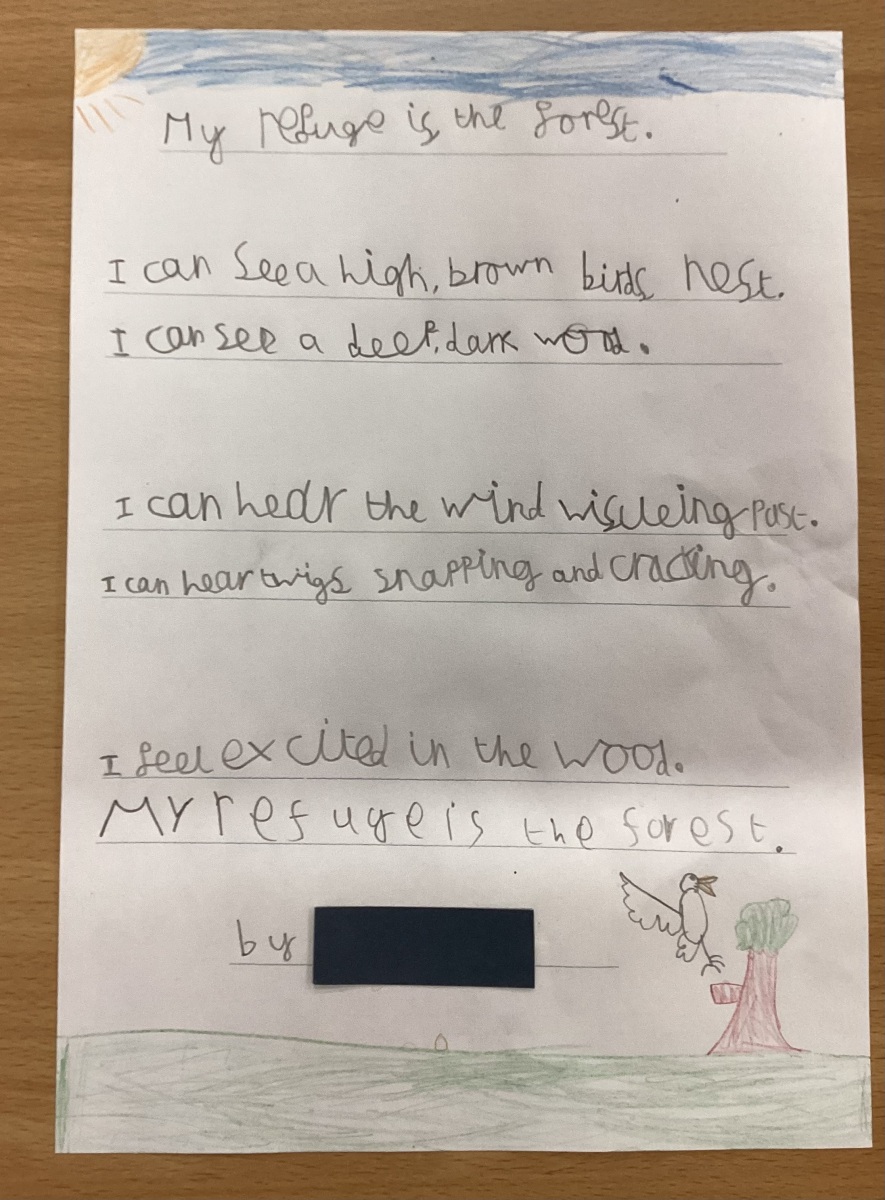 My refuge is the forest.
I can see a high, brown birds nest.
I can see a deep, dark wood.
I can hear the wind wisleing past.
I can hear twigs snapping and cracking.
I feel excited in the wood.
My refuge is the forest.
by